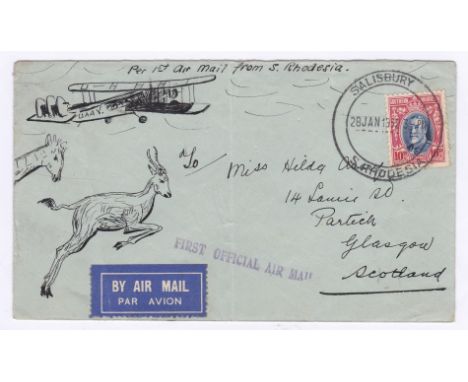 Per 1st Air Mail from S. Rhodesia.
SALISBURY
28 JAN 19
S. RHODESIA
SOUTHERN
10
Miss Hilda
14
Partick
Glasgow
Scotland
FIRST OFFICIAL AIR MAIL
BY AIR MAIL
PAR AVION